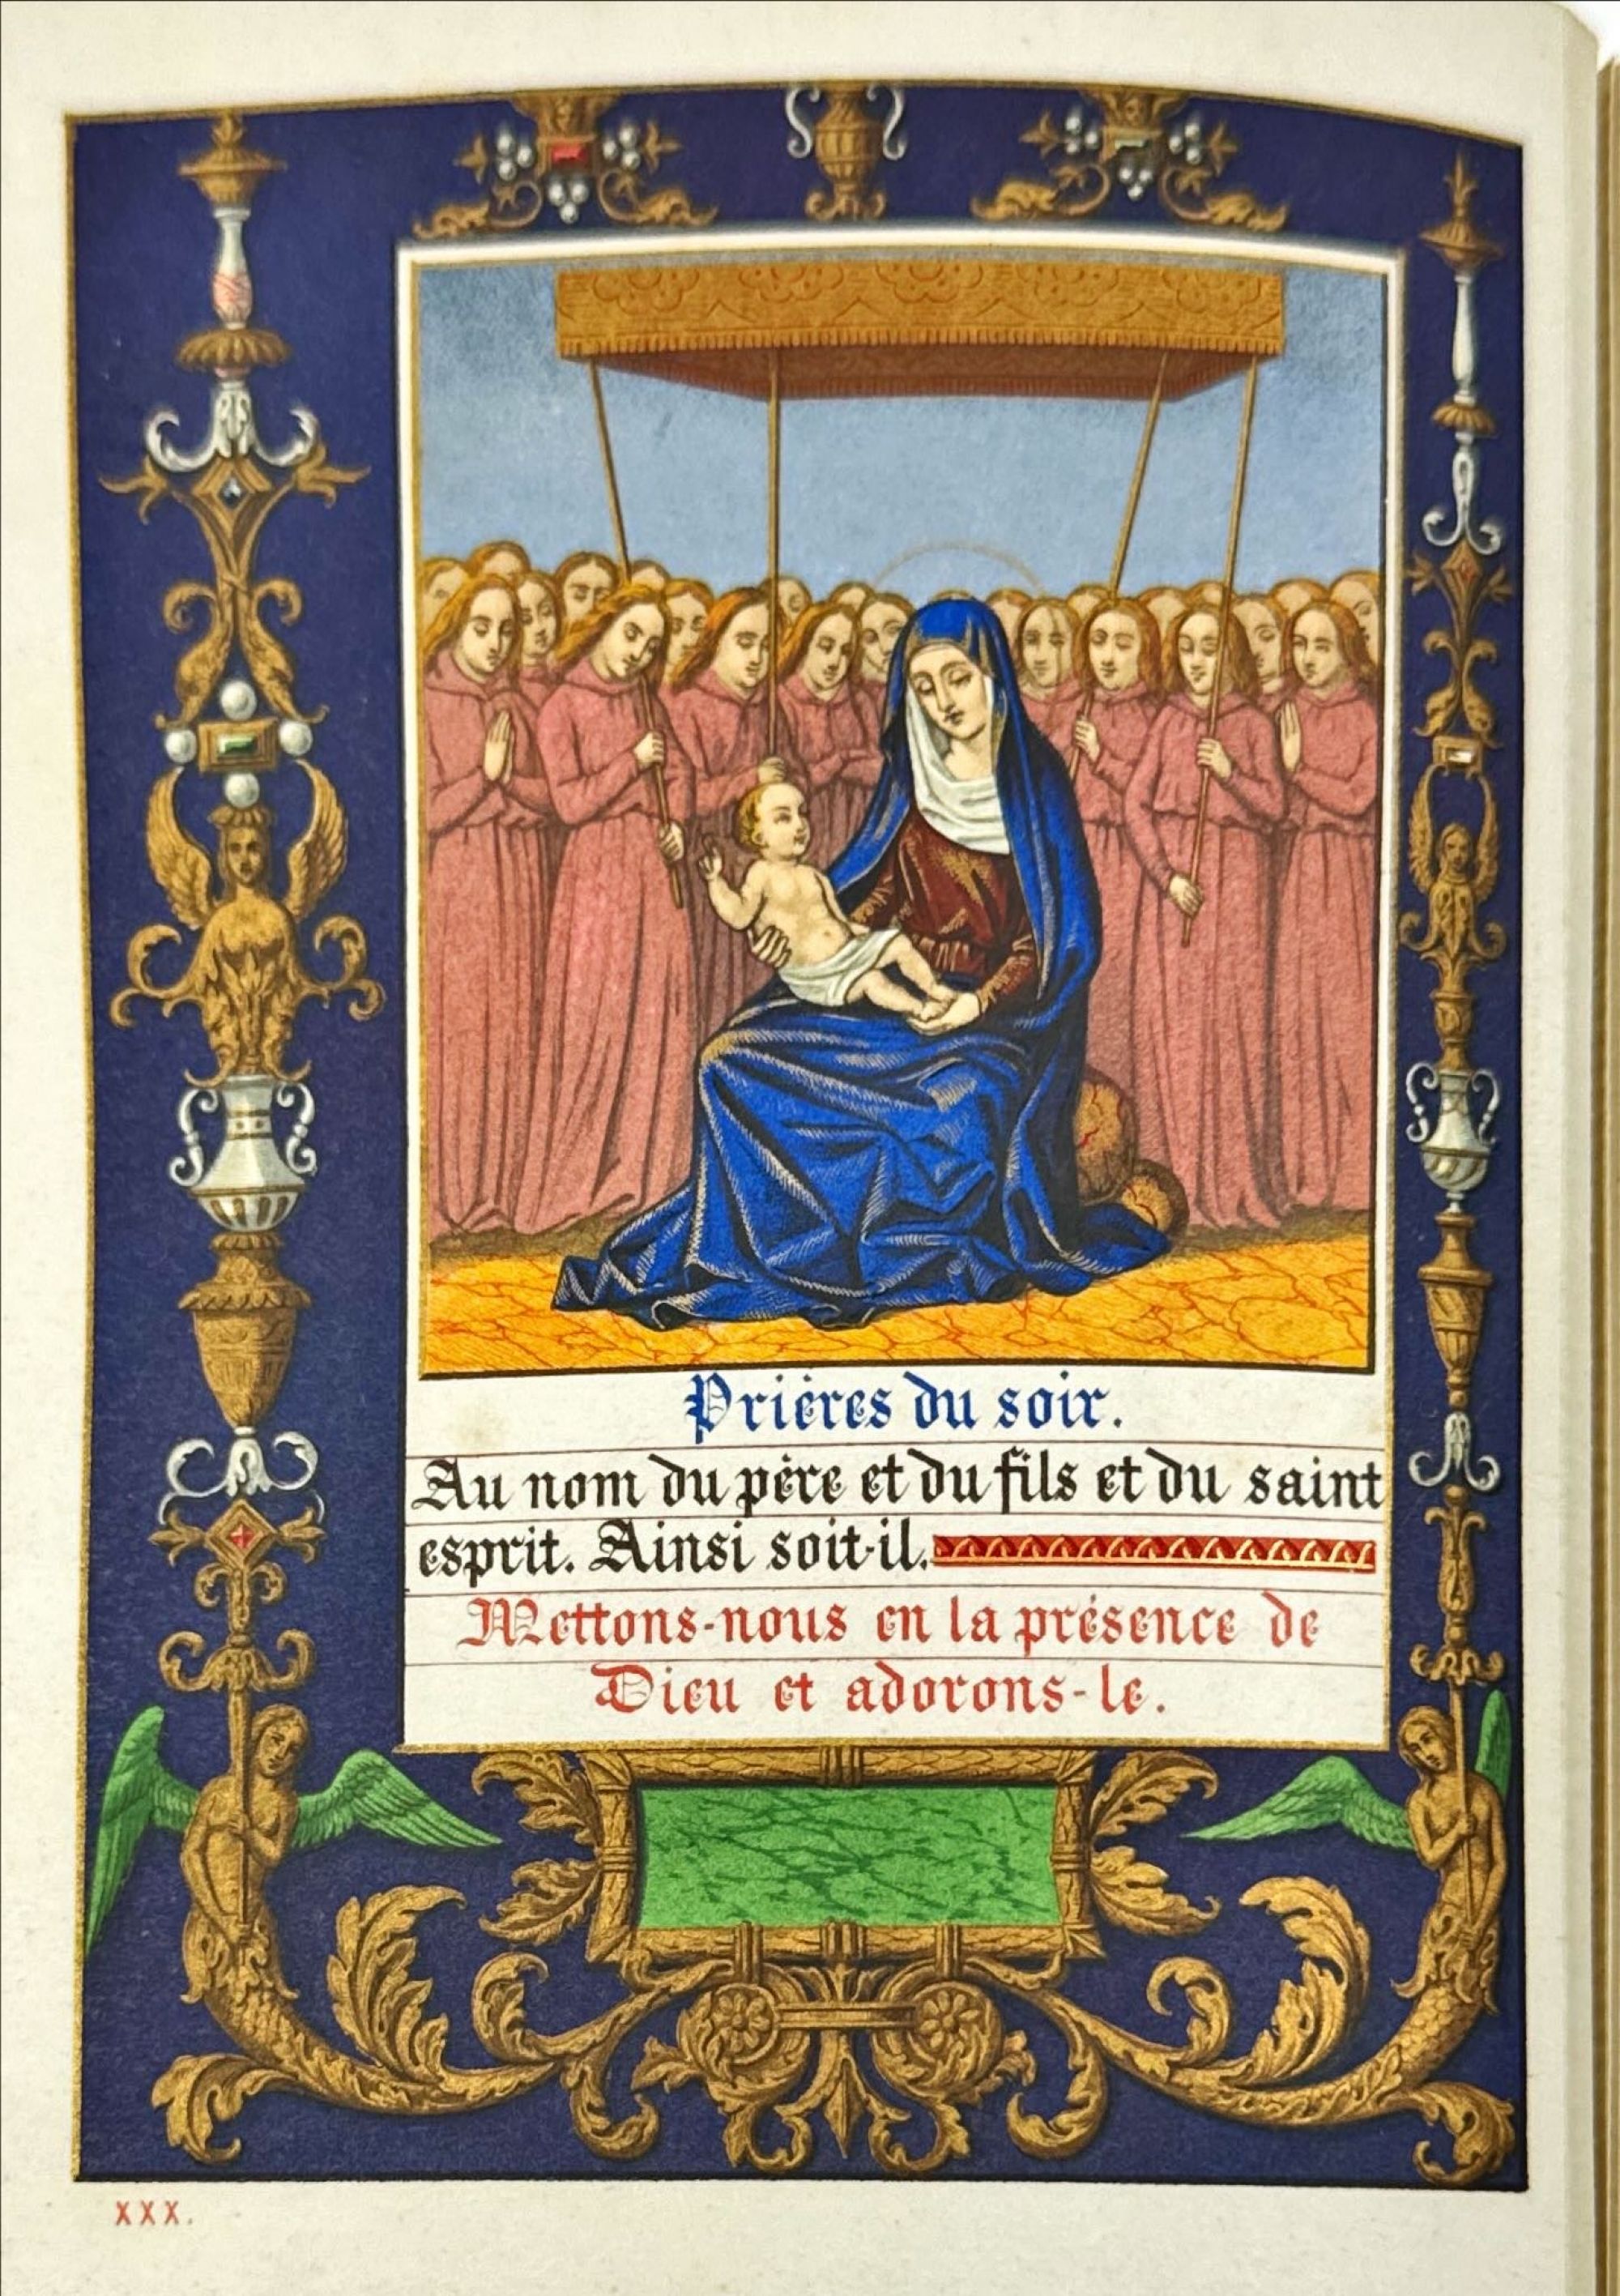 Prières du soir.
Au nom du père et du fils et du saint
esprit. Ainsi soit-il.
Mettons-nous en la présence de
Dieu et adorons-le.
XXX.